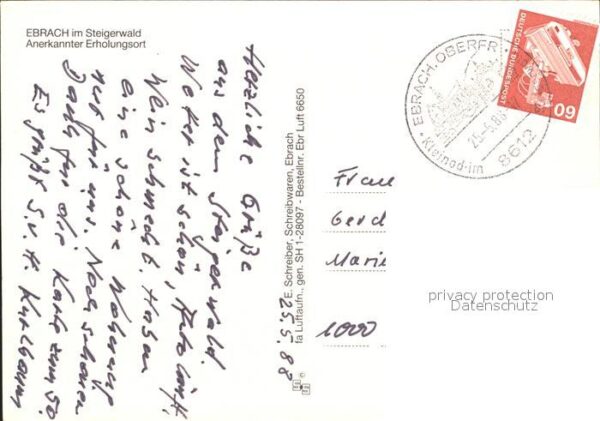 EBRACH im Steigerwald
Anerkannter Erholungsort
Herzliche Grüße
aus dem Steigerwald.
Wetter ist schön,
Wein schmeckt. Haben
eine schöne Wohnung
nur für uns. Noch schönen
Dank für die Karte zum 50.
Es grüßt
25.5.88
E. Schreiber, Schreibwaren, Ebrach
fa Luftaufn., gen. SH 1-28097 - Bestellnr. Ebr Luft 6650
EBRACH, OBERFR
25.-5.88
8612
Kleinod-im
DEUTSCHE BUNDESPOST
60
Frau
Gerd
Marie
1000
privacy protection
Datenschutz